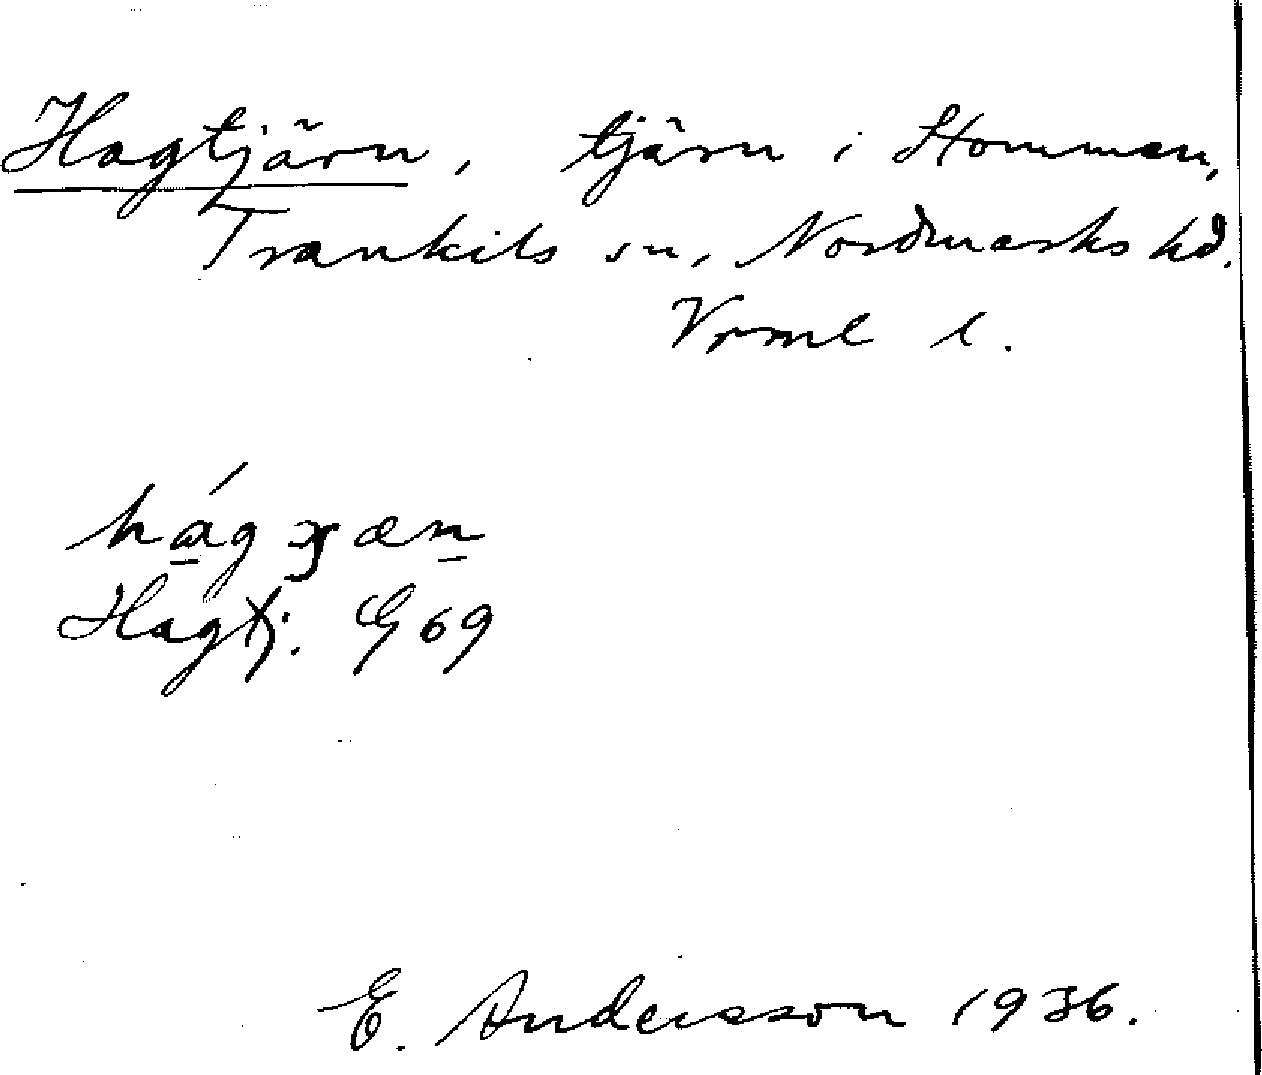 Hagtjärn, tjärn i Hommen,
Trankils sn, Nordmarks hd.
Vrml l.
Hagtj. G 69
E. Andersson 1936.